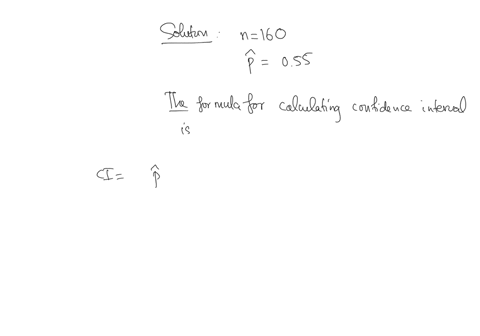 Solution: n=160
p̂ = 0.55
The formula for calculating confidence interval
is
CI= p̂